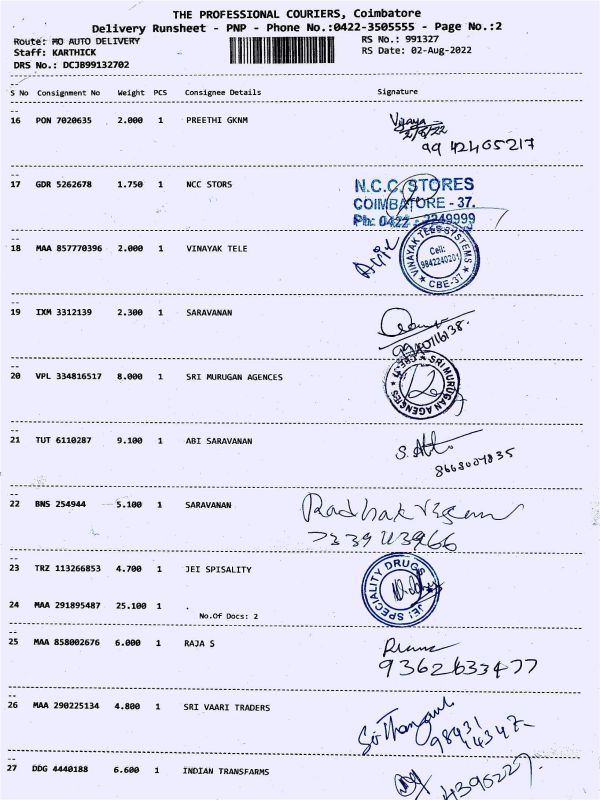 THE PROFESSIONAL COURIERS, Coimbatore
Delivery Runsheet - PNP - Phone No.:0422-3505555 - Page No.:2
Route: MO AUTO DELIVERY RS No.: 991327
Staff: KARTHICK RS Date: 02-Aug-2022
DRS No.: DCJB99132702
S No Consignment No Weight PCS Consignee Details Signature
16 PON 7020635 2.000 1 PREETHI GKNM
Vijaya
2/8/22
9942405217
17 GDR 5262678 1.750 1 NCC STORS
N.C.C. STORES
COIMBATORE - 37.
Ph: 0422 - 2249999
18 MAA 857770396 2.000 1 VINAYAK TELE
VINAYAK TELE SYSTEMS
Cell:
9842240201
CBE-37
19 IXM 3312139 2.300 1 SARAVANAN
20 VPL 334816517 8.000 1 SRI MURUGAN AGENCES
SRI MURUGAN AGENCIES
21 TUT 6110287 9.100 1 ABI SARAVANAN
22 BNS 254944 5.100 1 SARAVANAN
23 TRZ 113266853 4.700 1 JEI SPISALITY
JEI SPECIALITY DRUGS
24 MAA 291895487 25.100 1 .
No.Of Docs: 2
25 MAA 858002676 6.000 1 RAJA S
9362633477
26 MAA 290225134 4.800 1 SRI VAARI TRADERS
27 DDG 4440188 6.600 1 INDIAN TRANSFARMS